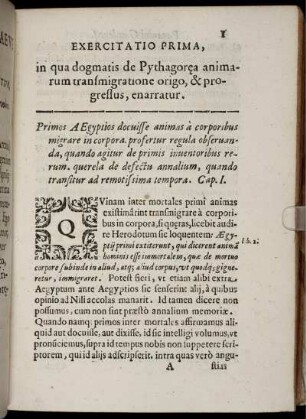 1
EXERCITATIO PRIMA,
in qua dogmatis de Pythagorea anima-
rum transmigratione origo, & pro-
gressus, enarratur.
Primos AEgyptios docuisse animas à corporibus
migrare in corpora. profertur regula observan-
da, quando agitur de primis inventoribus re-
rum. querela de defectu annalium, quando
transitur ad remotissima tempora. Cap. I.
QVinam inter mortales primi animas
existimârint transmigrare à corpori-
bus in corpora, si quæras, licebit audi-
re Herodotum sic loquentem: Ægy-
ptij primi extiterunt, qui dicerent animā
hominis esse immortalem, quæ de mortuo
corpore subinde in aliud, atq; aliud corpus, ut quodq; gigne-
retur, immigraret. Potest fieri, vt etiam alibi extra
Aegyptum ante Aegyptios sic senserint alij, à quibus
opinio ad Nili accolas manarit. Id tamen dicere non
possumus, cum non sint præstò annalium memoriæ.
Quando namq; primos inter mortales affirmamus ali-
quid aut docuisse, aut dixisse, id sic intelligi volumus, vt
pronūciemus, supra id tempus nobis non suppetere scri-
ptorem, qui id alijs adscripserit. intra quas verò angu-
A stias
l. b. 2.